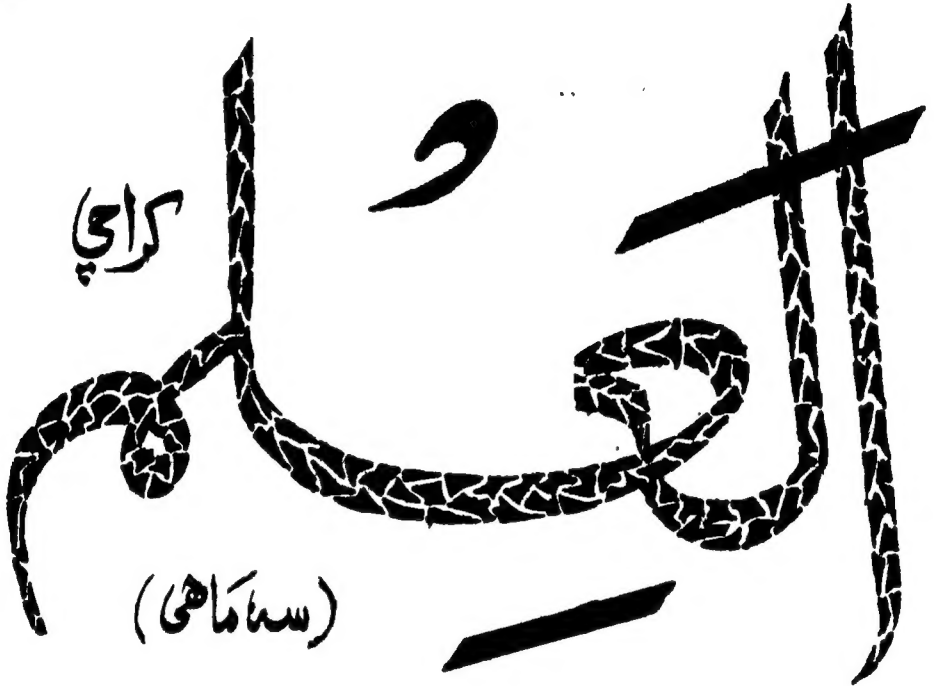 العِلمُ
کراچی
(سہ ماھی)